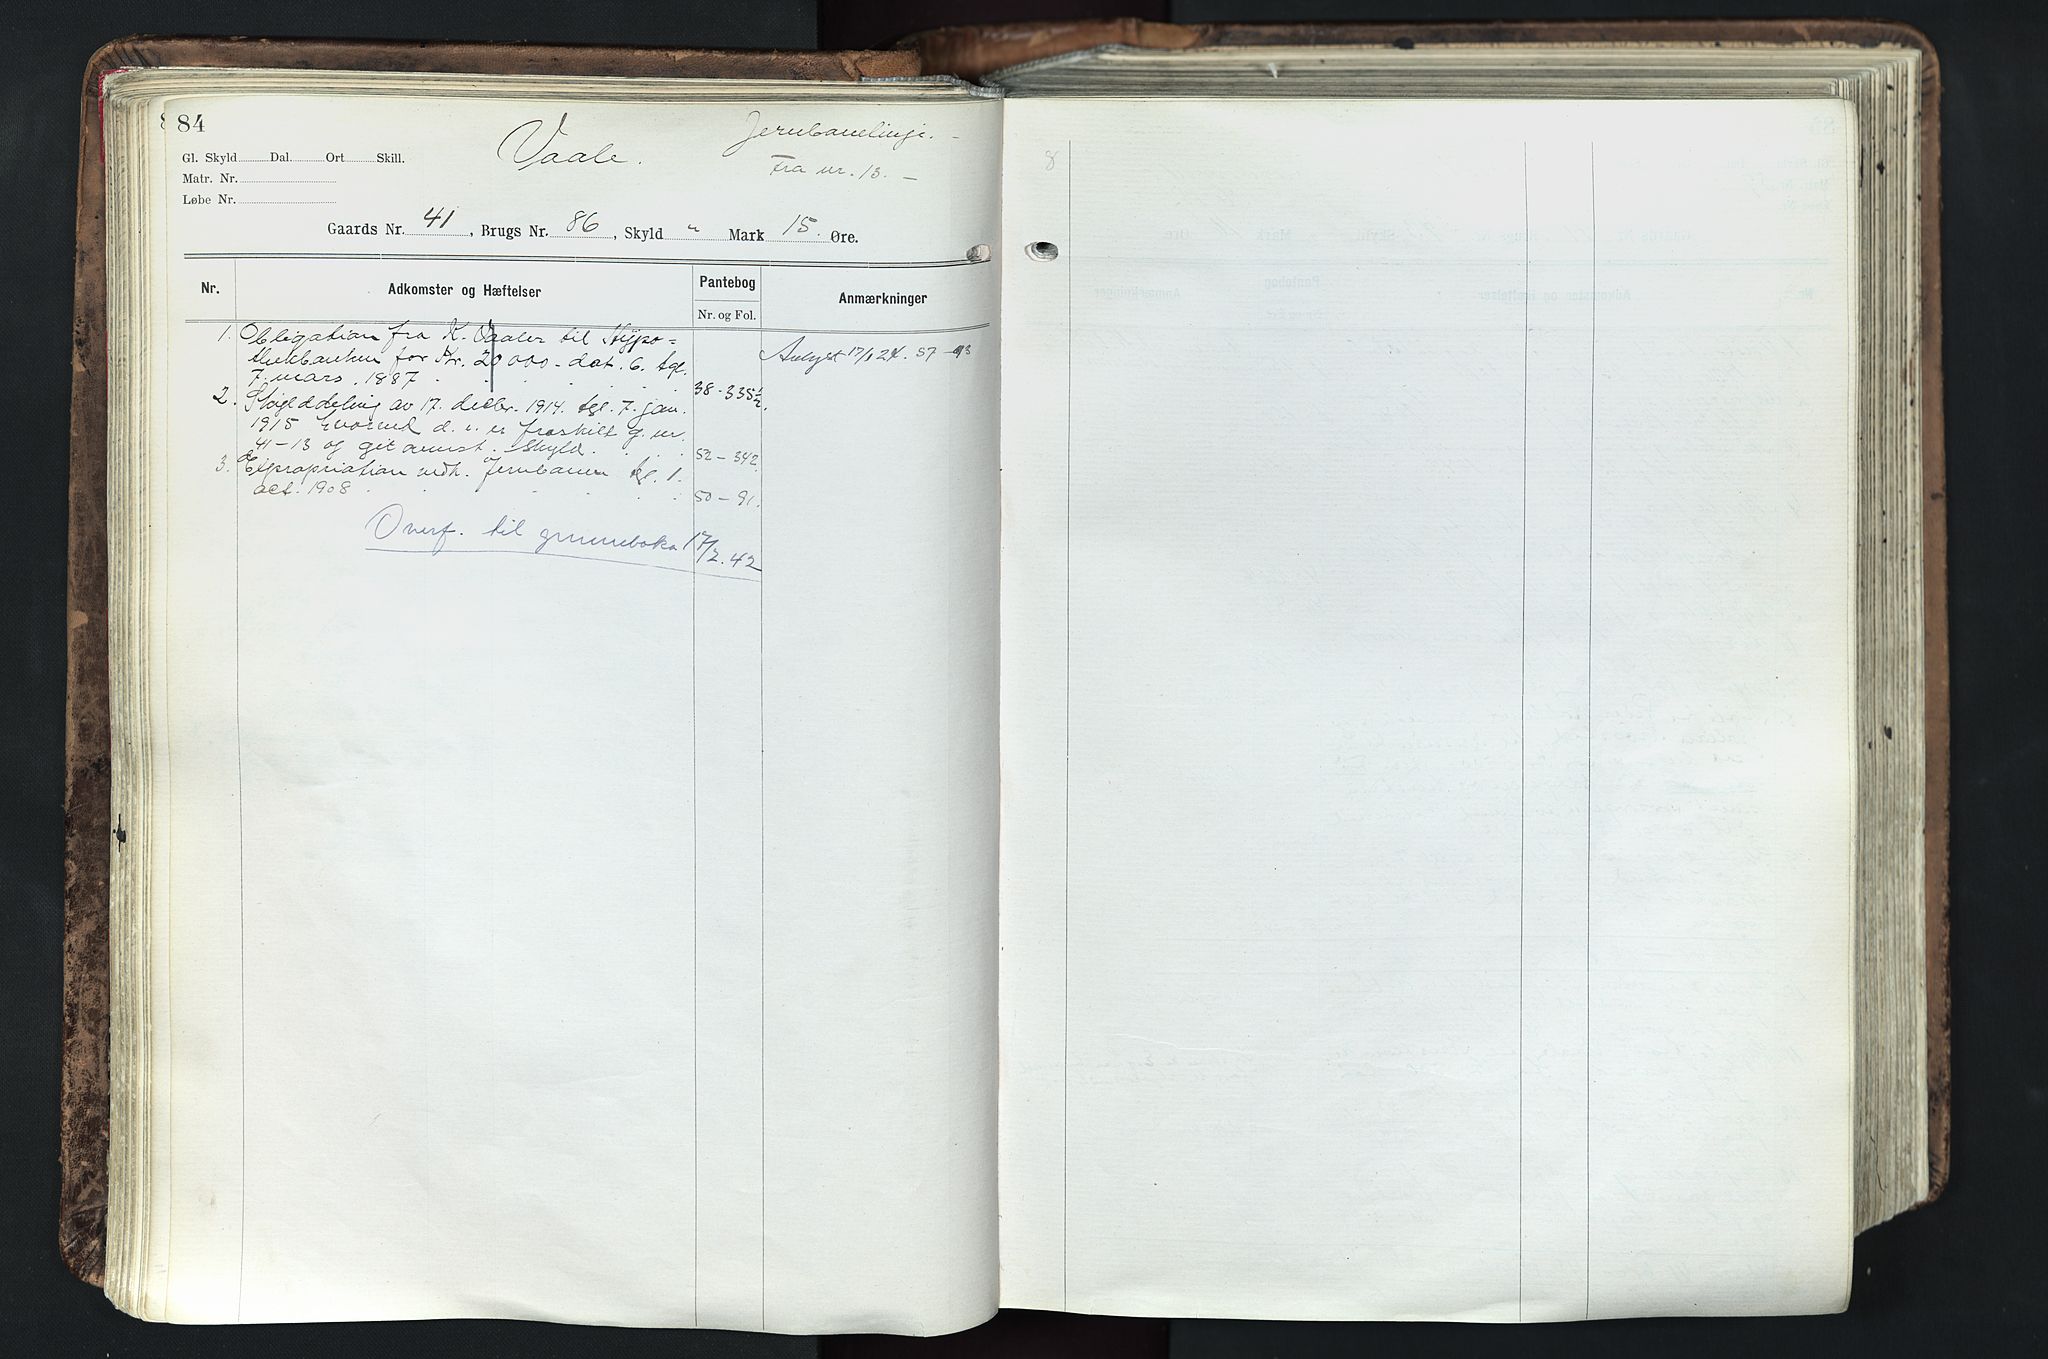 84
Vaale. Jernbanelinje. -
Fra nr. 13. -
Gl. Skyld Dal. Ort Skill.
Matr. Nr.
Løbe Nr.
Gaards Nr. 41, Brugs Nr. 86, Skyld " Mark 15. Øre.
Nr. Adkomster og Hæftelser Pantebog Anmærkninger
Nr. og Fol.
1. Obligation fra K. Vaaler til Hypo=
thekbanken for Kr. 20 000 - dat. 6. tgl. Avlyst 17/1 24. 57 - 93
7. mars. 1887 38 - 335½
2. Skylddeling av 17. decbr. 1914. tgl. 7. jan.
1915 hvorved d. e. er fraskilt g. nr.
41 - 13 og git anmst. Skyld. 52 - 342
3. Expropriation vedk. Jernbanen tgl. 1.
oct. 1908 50 - 91.
Overf. til grunnboka 17/2. 42
8